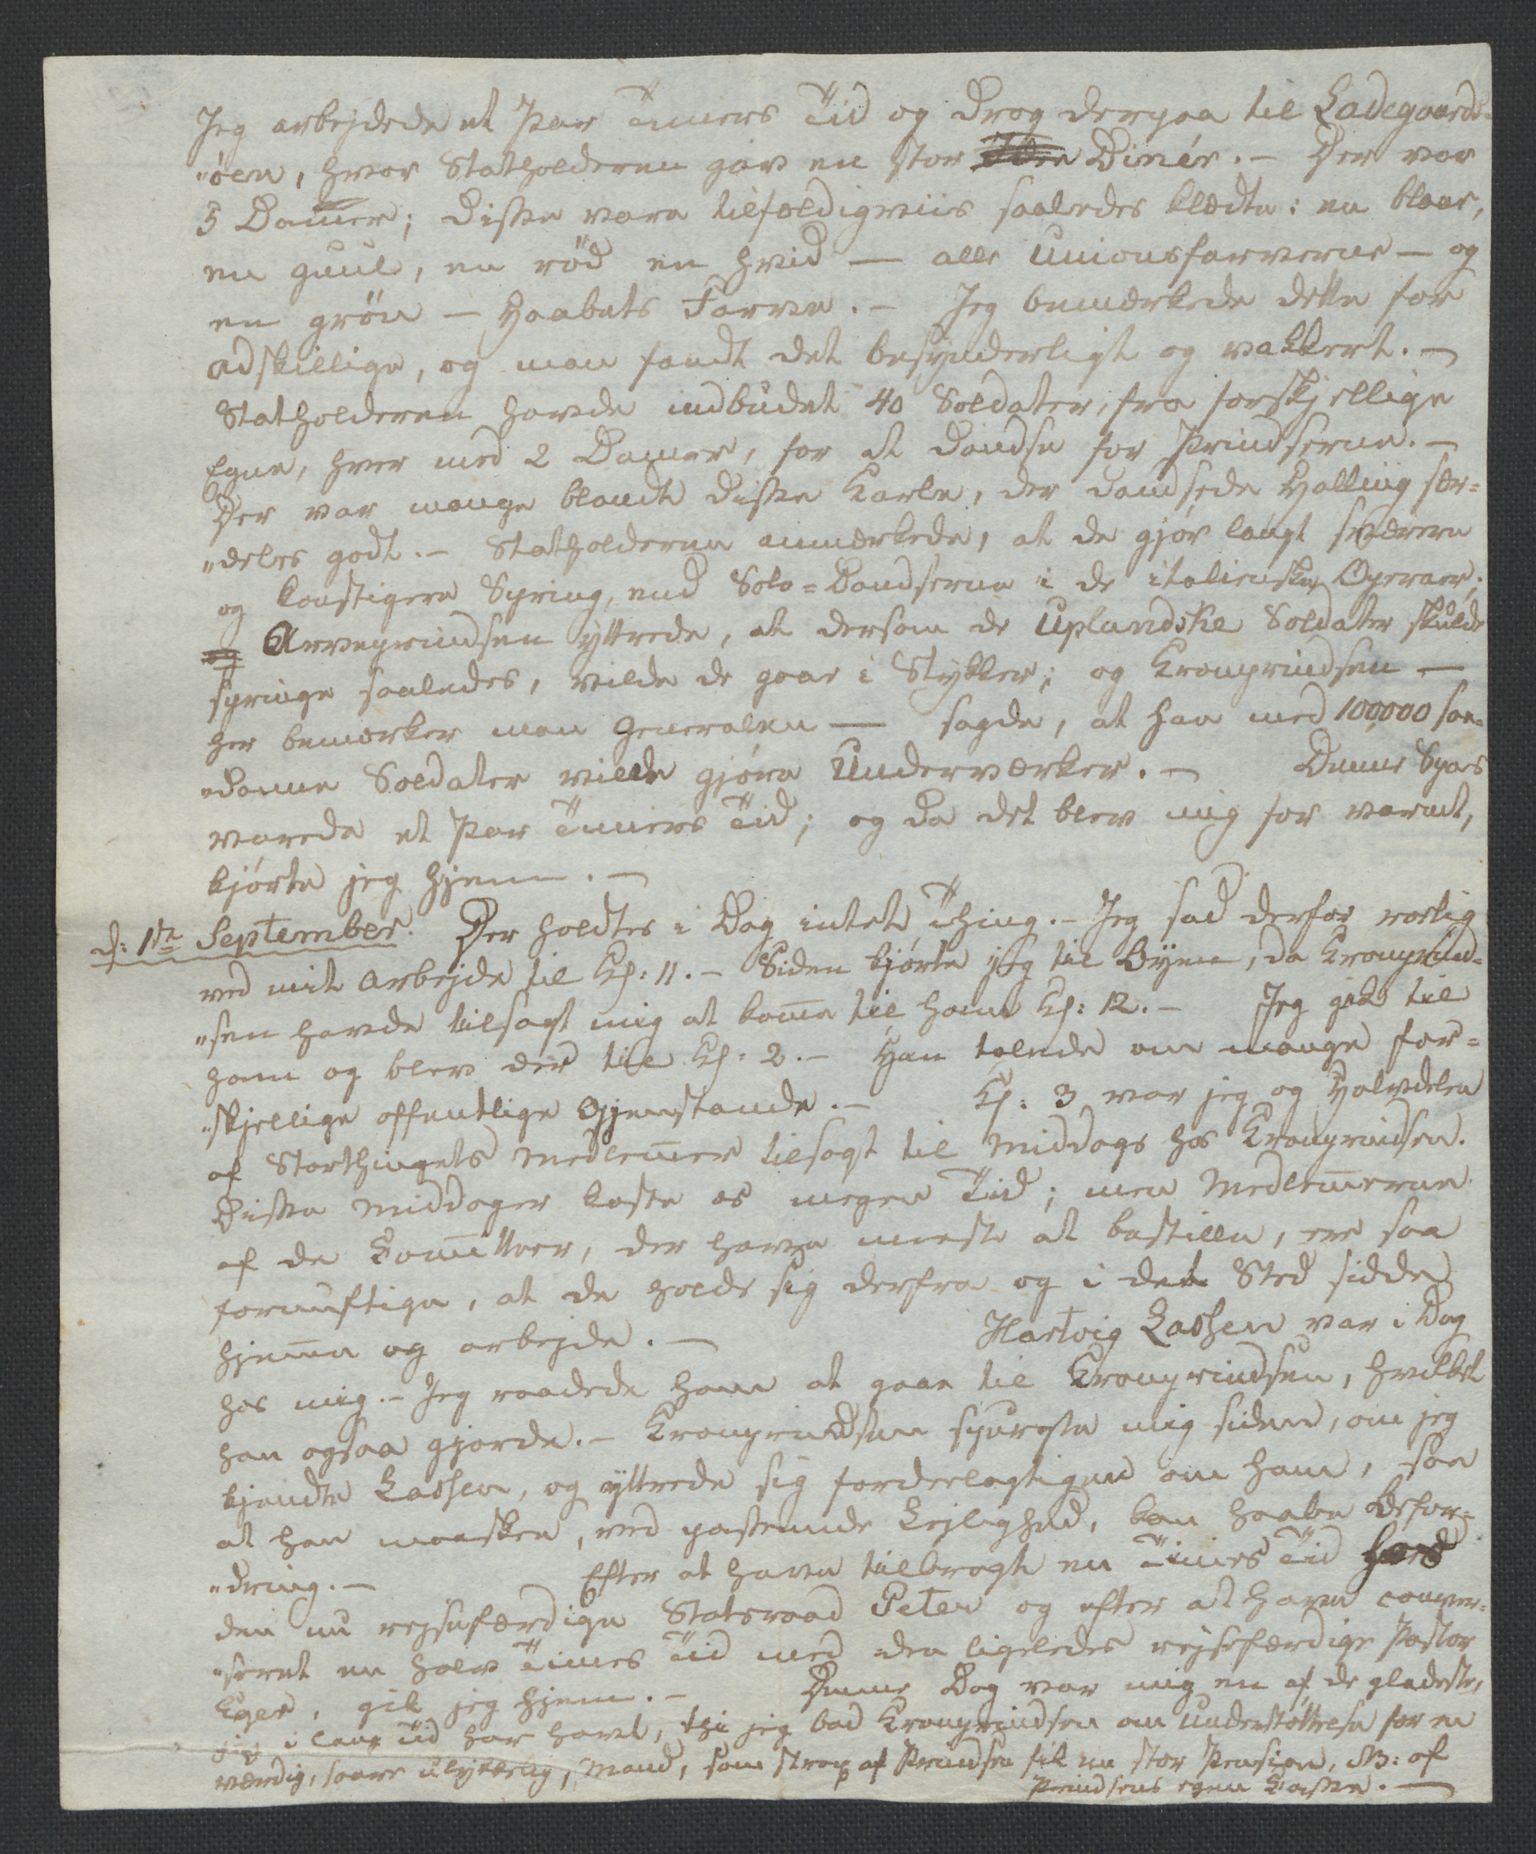 Jeg arbejdede et Par Timers Tid og drog derpaa til Ladegaards-
"öen, hvor Statholderen gav en stor Dinér. - Der var
5 Damer; disse vare tilfældigviis saaledes klædte: en blaae,
en guul, en röd en hvid — alle Unionsfarverne - og
en grön - Haabets Farve. - Jeg bemærkede dette for
adskillige, og man fandt det besynderligt og vakkert. -
Statholderen havde indbudet 40 Soldater, fra forskjellige
Egne, hver med 2 Damer, for at dandse for Prindserne. -
Der var mange blandt disse Karle, der dandsede Halling sær=
"deles godt. - Statholderen anmærkede, at de gjör langt sværere
og konstigere Spring, end Solo=Dandserne i de italienske Operaer;
og Arveprindsen yttrede, at dersom de Uplandske Soldater skulde
springe saaledes, vilde de gaae i Stykker; og Kronprindsen —
her bemærker man Generalen — sagde, at han med 100,000 saa=
"danne Soldater vilde gjöre Underværker. - Denne Spas
varede et Par Timers Tid; og da det blev mig for varmt,
kjörte jeg hjem. -
d: 1ste September. Der holdtes i Dag intet Thing. - Jeg sad derfor rolig
ved mit Arbejde til Kl: 11. - Siden kjörte jeg til Byen, da Kronprind=
"sen havde tilsagt mig at komme til ham Kl: 12. - Jeg gik til
ham og blev der til Kl: 2. - Han talede om mange for=
"skjellige offentlige Gjenstande. - Kl: 3 var jeg og Halvdelen
af Storthingets Medlemer tilsagt til Middags hos Kronprindsen.
Disse Middager koste os megen Tid; men Medlemerne
af de Comitteer, der have meest at bestille, ere saa
fornuftige, at de holde sig derfra og i det Sted sidde
hjemme og arbejde. - Hartvig Lassen var i Dag
hos mig. - Jeg raadede ham at gaae til Kronprindsen, hvilket
han ogsaa gjorde. - Kronprindsen spurgte mig siden, om jeg
kjendte Lassen, og yttrede sig fordeelagtigen om ham, saa
at han maaskee, ved passende Lejlighed, kan haabe Befor=
"dring. - Efter at have tilbragt en Times Tid hos
den nu rejsefærdige Statsraad Peter og efter at have conver=
"seret en halv Times Tid med den ligeledes rejsefærdige Pastor
Eger, gik jeg hjem. - Denne Dag var mig en af de gladeste,
jeg i lang Tid har havt, thi jeg bad Kronprindsen om Understöttelse for en
værdig, saare ulykkelig, Mand, som strax af Prindsen fik en stor Pension, NB: af
Prindsens egen Casse. -